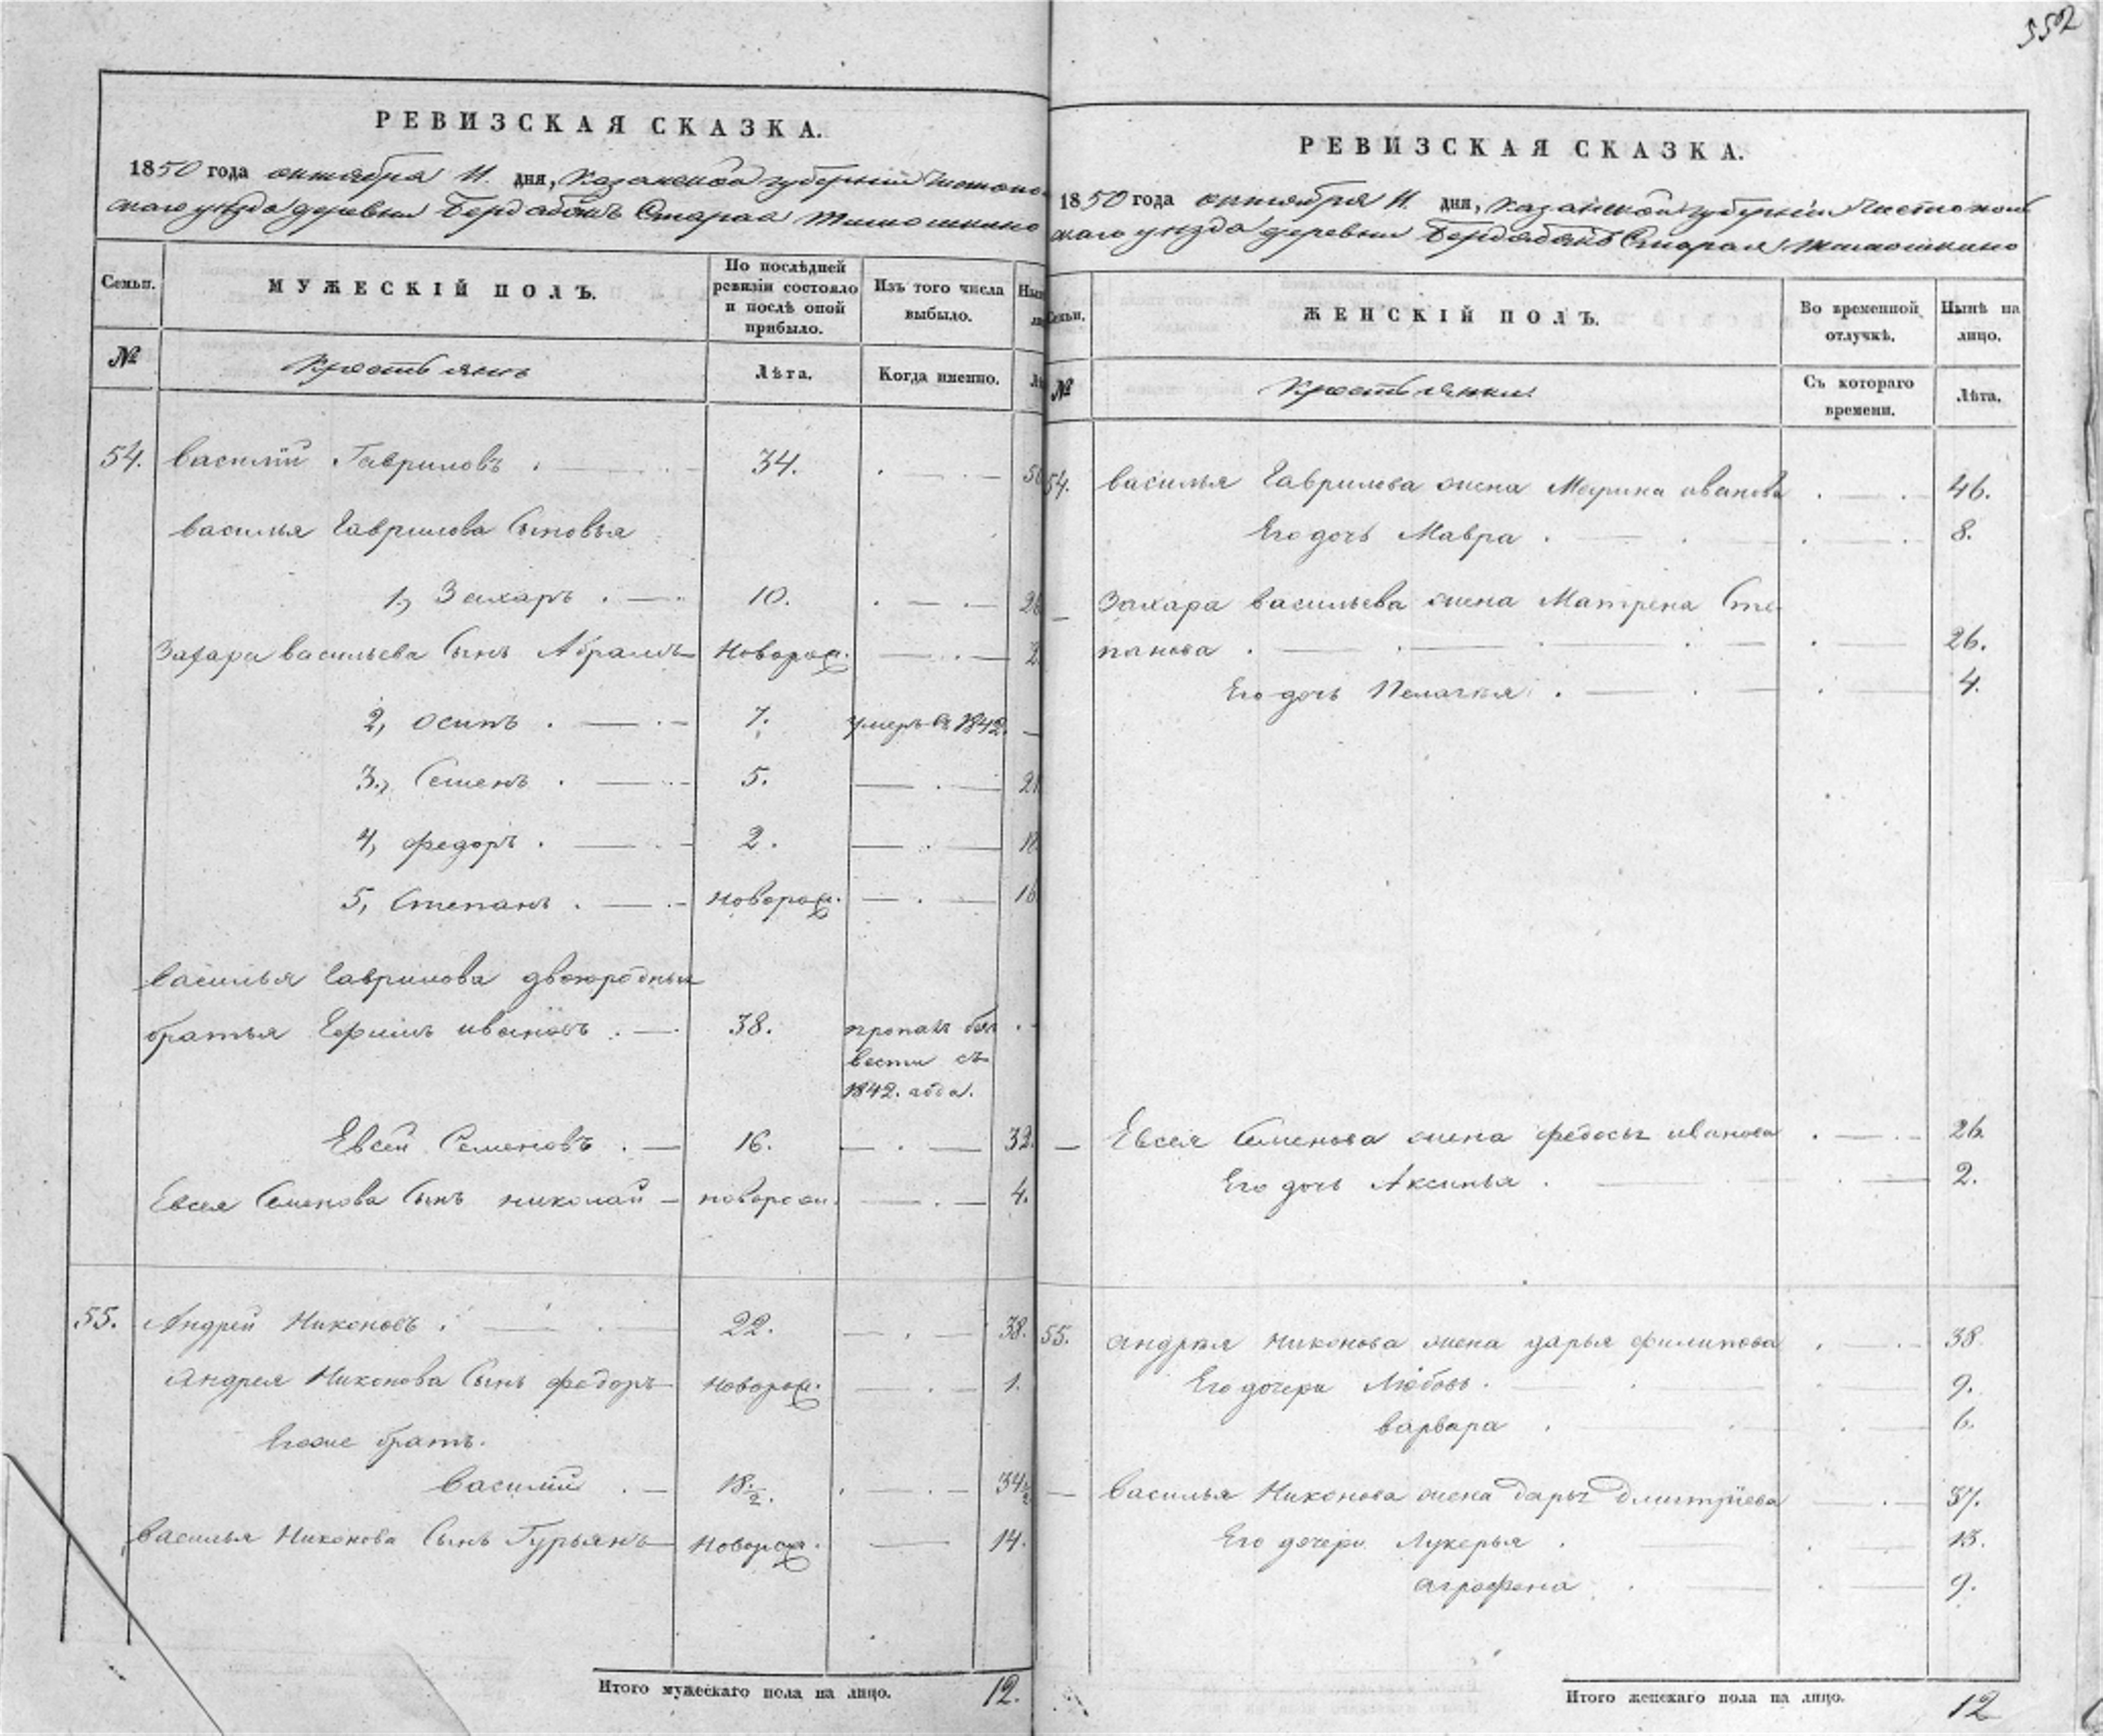 552
РЕВИЗСКАЯ СКАЗКА.
1850 года октября 11. дня, Казанской губернии Чистопо-
скаго уезда деревни Бердебякъ Старая Тимошкино
Семьи. МУЖЕСКІЙ ПОЛЪ. По послѣдней ревизіи состояло и послѣ оной прибыло. Изъ того числа выбыло.
№ Крестьянъ Лѣта. Когда именно.
54. Василій Гавриловъ . 34.
Василья Гаврилова Сыновья
1, Захаръ . 10.
Захара Васильева Сынъ Абрамъ Новорож. 2
2, Осипъ . 7. умеръ въ 1842.
3, Семенъ . 5. 21
4, Федоръ . 2. 18
5, Степанъ . новорож. 16
Василья Гаврилова двоюродныя
братья Ефимъ Ивановъ . 38. пропалъ безъ
вести съ
1842. года.
Евсей Семеновъ . 16. 32.
Евсея Семенова Сынъ Николай новорож. 4.
55. Андрей Никоновъ . 22. 38.
Андрея Никонова Сынъ Федоръ Новорож. 1.
Егоже братъ.
Василій . 18 1/2. 34 1/2
Василья Никонова Сынъ Гурьянъ Новорож. 14.
Итого мужескаго пола на лицо. 12.
РЕВИЗСКАЯ СКАЗКА.
1850 года октября 11. дня, Казанской губерніи Чистопол
скаго уезда деревни Бердебякъ Старая Тимошкино
Семьи. ЖЕНСКІЙ ПОЛЪ. Во временной отлучкѣ. Нынѣ на лицо.
№ Крестьянки. Съ котораго времени. Лѣта.
54. Василья Гаврилова жена Марина Иванова . 46.
Его дочь Мавра . 8.
Захара Васильева жена Матрена Сте
панова . 26.
Его дочь Пелагея . 4.
Евсея Семенова жена Федосья Иванова . 26.
Его дочь Аксинья . 2.
55. Андрея Никонова жена Дарья Филипова . 38.
Его дочери Любовь . 9.
Варвара . 6.
Василья Никонова жена Дарья Дмитріева 37.
Его дочери Лукерья . 13.
Аграфена . 9.
Итого женскаго пола на лицо. 12